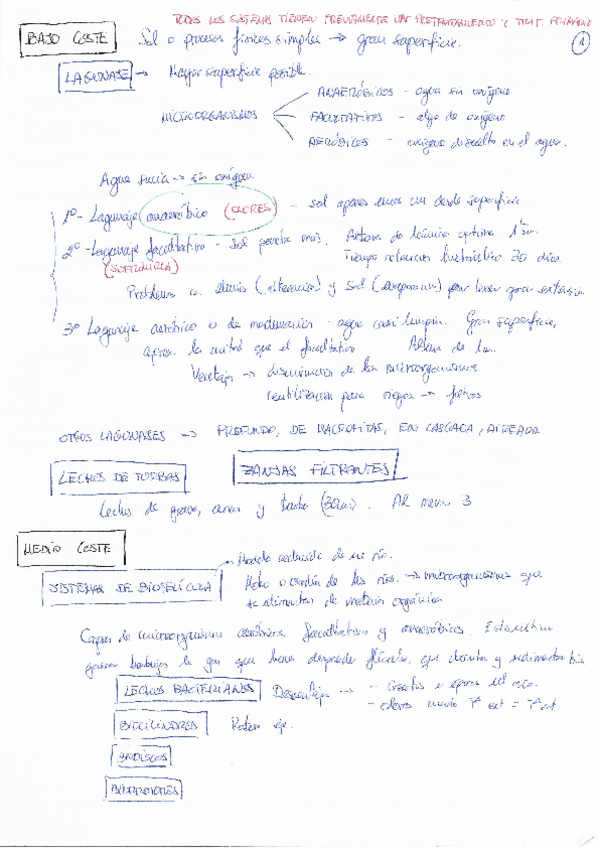 TODOS LOS SISTEMAS TIENEN PREVIAMENTE UN PRETRATAMIENTO Y TRAT. PRIMARIO
1
BAJO COSTE
Sol o procesos físicos simples → gran superficie.
LAGUNAJE → Mayor superficie posible.
MICROORGANISMOS
ANAERÓBICOS - agua sin oxígeno
FACULTATIVOS - algo de oxígeno
AERÓBICOS - oxígeno disuelto en el agua.
Agua sucia → sin oxígeno
1º- Lagunaje anaeróbico (OLORES) - sol apenas unos cm desde superficie
2º- Lagunaje facultativo - Sol penetra más. Altura de lámina óptima 1'5m.
Tiempo retención hidráulico 30 días.
Problema a lluvia (alteración) y sol (evaporación) por tener gran extensión
3º Lagunaje aeróbico o de maduración - agua casi limpia. Gran superficie,
aprox. la mitad que el facultativo Altura de 1m.
Ventaja → disminución de los microorganismos
reutilización para riegos →
OTROS LAGUNAJES → PROFUNDO, DE MACROFITAS, EN CASCADA, AIREADO
LECHOS DE TURBAS
ZANJAS FILTRANTES
Lechos de grava, arena y turba (30cm). AR 3
MEDIO COSTE
Modelo reducido de un río.
SISTEMAS DE BIOPELÍCULA
Moho o verdín de los ríos. → microorganismos que
se alimentan de materia orgánica
Capas de microorganismos aeróbicos, facultativos y anaeróbicos.
burbujas que hace desprende flóculo, que decanta y sedimenta
LECHOS BACTERIANOS
Desventaja → - insectos
- olores cuando Tª ext = Tª int
BIOCILINDROS
Rotan eje.
BIODISCOS